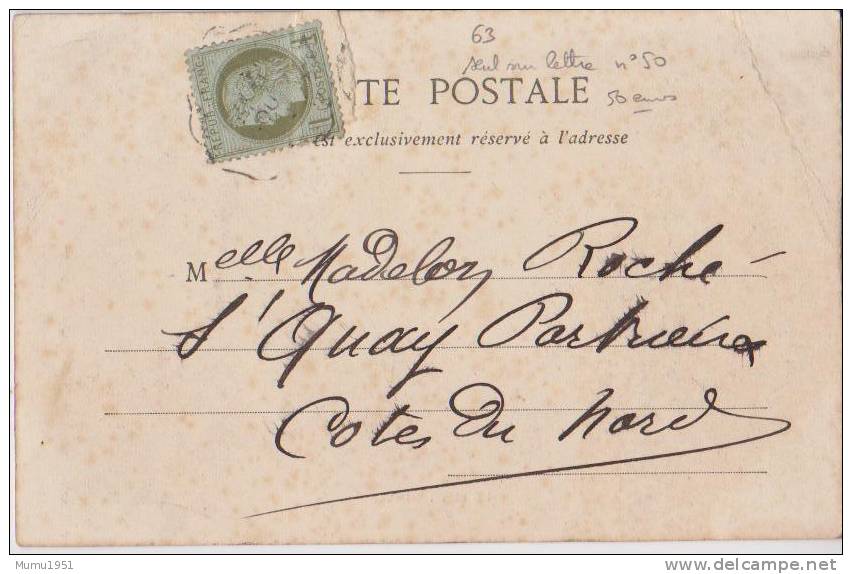 63
seul sur lettre n°50
TE POSTALE 50 euros
est exclusivement réservé à l'adresse
REPUB. FRANC.
Melle Madelon Roché
St Quay Portrieux
Cotes Du Nord
Mumu1951
delcampe.net